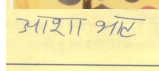 आशा भाट